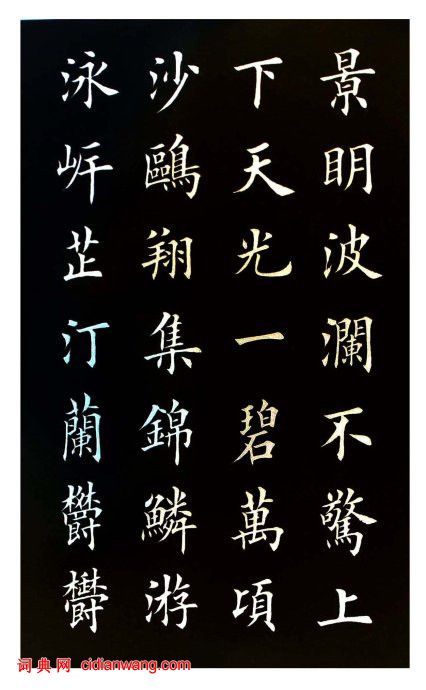 景明波瀾不驚上
下天光一碧萬頃
沙鷗翔集錦鱗游
泳岸芷汀蘭欝欝
词典网 cidianwang.com